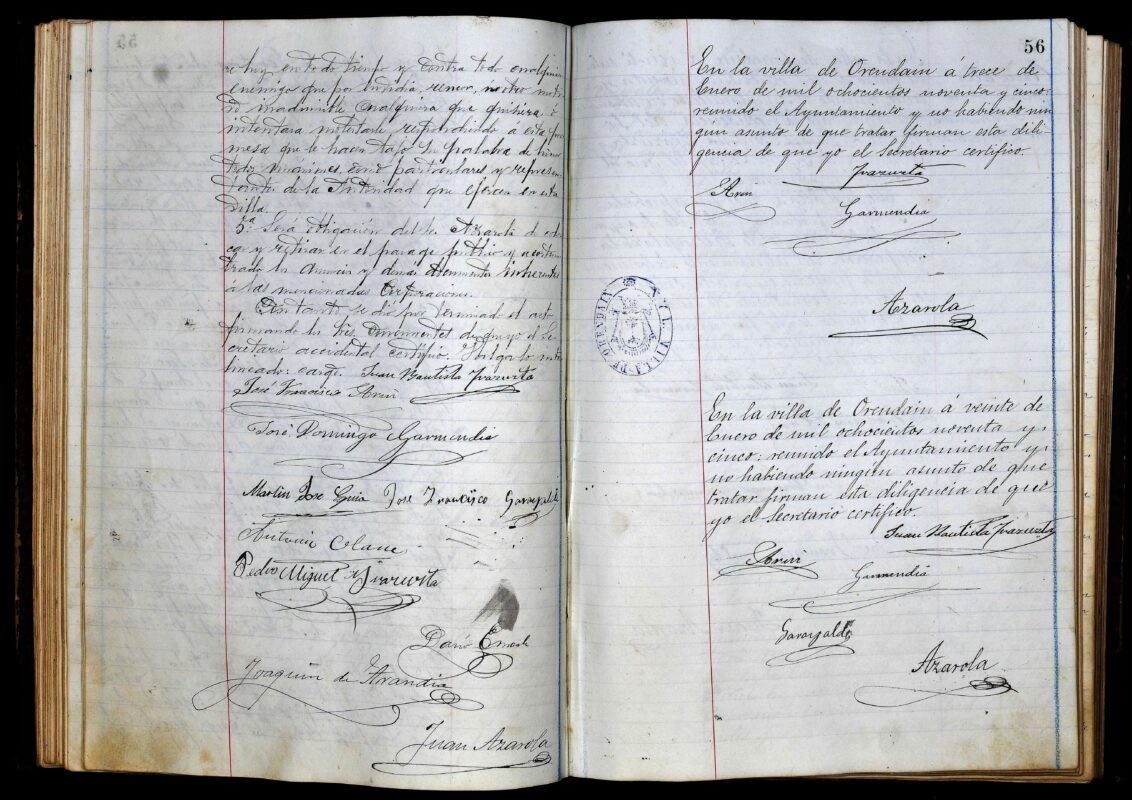 en todo tiempo y contra todo cualquier
enemigo que por envidia, rencor, ú otro moti-
vo inadmisible cualquiera que quisiera ó
intentara molestarle respondiendo a esta pro-
mesa que le hacen bajo su palabra de honor
todos como particulares y represen-
tantes de la Autoridad que ejercen en esta
Villa.
5.ª Será obligación del Sr. Azarola de colo-
car y retirar en el paraje público y acostum-
brado los anuncios y demas documentos inherentes
á las mencionadas Corporaciones.
Con tanto se dió por terminado el acto
firmando los Sres. concurrentes de que yo el Se-
cretario accidental certifico.
Juan Bautista Yrazusta
José Francisco
José Domingo Garmendia
Martin José José Francisco
Antonio Olano
Pedro Miguel Yrazusta
Dario
Joaquin de Arandia
Juan Azarola
56
En la villa de Orendain á trece de
Enero de mil ochocientos noventa y cinco:
reunido el Ayuntamiento y no habiendo nin-
gún asunto de que tratar firman esta dili-
gencia de que yo el Secretario certifico.
Yrazusta
Garmendia
Azarola
VILLA DE ORENDAIN
En la villa de Orendain á veinte de
Enero de mil ochocientos noventa y
cinco: reunido el Ayuntamiento y
no habiendo ningún asunto de que
tratar firman esta diligencia de que
yo el Secretario certifico.
Juan Bautista Yrazusta
Garmendia
Azarola